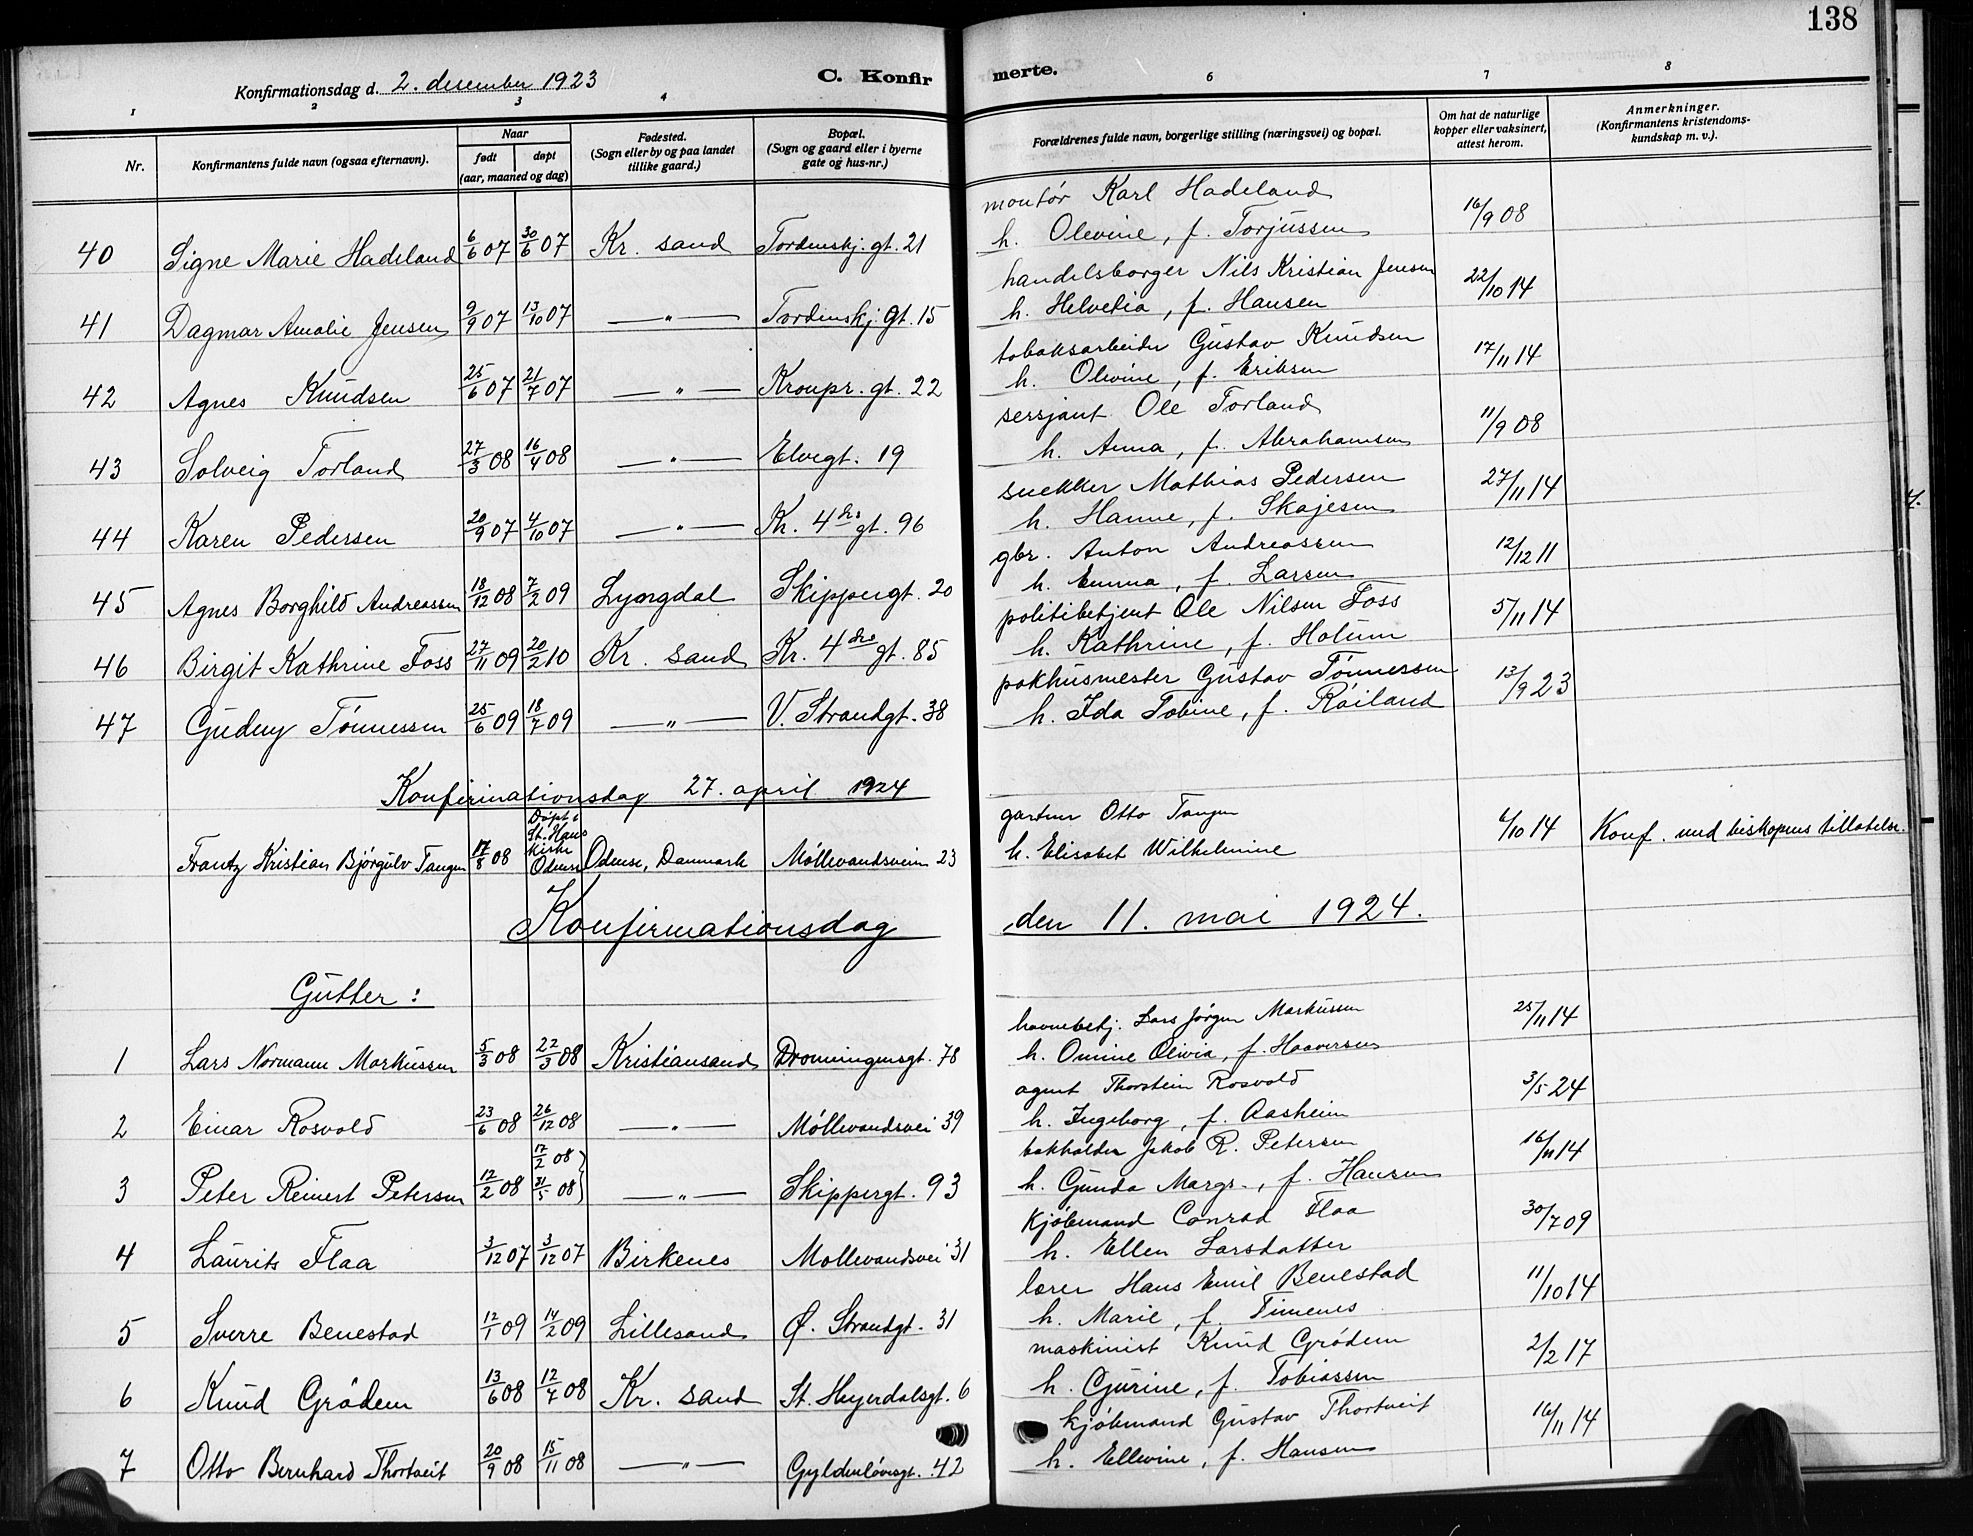 138
Konfirmationsdag d. 2. desember 1923
C. Konfirmerte.
1 2 3 4 6 7 8
Nr.
Konfirmantens fulde navn (ogsaa efternavn).
Naar
født døpt
(aar, maaned og dag)
Fødested.
(Sogn eller by og paa landet
tillike gaard.)
Bopæl.
(Sogn og gaard eller i byerne
gate og hus-nr.)
Forældrenes fulde navn, borgerlige stilling (næringsvei) og bopæl.
Om hat de naturlige
kopper eller vaksinert,
attest herom.
Anmerkninger.
(Konfirmantens kristendoms-
kundskap m. v.).
montør Karl Hadeland
40 Signe Marie Hadeland 6/6 07 30/6 07 Kr. sand Tordenskj. gt. 21 h. Olevine, f. Torjussen 16/9 08
handelsborger Nils Kristian Jensen
41 Dagmar Amalie Jensen 9/9 07 13/10 07 —„— Tordenskj. gt. 15 h. Helvetia, f. Hansen 22/10 14
tobaksarbeider Gustav Knudsen
42 Agnes Knudsen 25/6 07 21/7 07 —„— Kronpr. gt. 22 h. Olevine, f. Eriksen 17/11 14
sersjant Ole Torland
43 Solveig Torland 27/3 08 16/4 08 —„— Elvegt. 19 h. Anna, f. Abrahamsen 11/9 08
snekker Mathias Pedersen
44 Karen Pedersen 20/9 07 4/10 07 —„— Kr. 4des gt. 96 h. Hanne, f. Skajesen 27/11 14
gbr. Anton Andreassen
45 Agnes Borghild Andreassen 18/12 08 7/2 09 Lyngdal Skippergt. 20 h. Emma, f. Larsen 12/12 11
politibetjent Ole Nilsen Foss
46 Birgit Kathrine Foss 27/11 09 20/2 10 Kr. sand Kr. 4des gt. 85 h. Kathrine, f. Holum 5/11 14
pakhusmester Gustav Tønnessen
47 Gudny Tønnessen 25/6 09 18/7 09 —„— V. Strandgt. 38 h. Ida Tobine, f. Røiland 13/9 23
Konfirmationsdag 27. april 1924
gartner Otto Tangen
Frantz Kristian Bjørgulv Tangen 17/8 08 Døpt i St. Hans kirke Odense Odense, Danmark Møllevandsveien 23 h. Elisabet Wilhelmine 6/10 14 Konf. med biskopens tillatelse.
Konfirmationsdag den 11. mai 1924.
Gutter:
havnebetj. Lars Jørgen Markussen
1 Lars Normann Markussen 5/3 08 22/3 08 Kristiansand Dronningensgt. 78 h. Omine Olivia, f. Haaversen 25/11 14
agent Thorstein Rosvold
2 Einar Rosvold 23/6 08 26/12 08 —„— Møllevandsvei 39 h. Ingeborg, f. Aasheim 3/5 24
bokholder Jakob R. Petersen
3 Peter Reinert Petersen 12/2 08 17/2 08 31/5 08 —„— Skippergt. 93 h. Gunda Margr., f. Hansen 16/11 14
Kjøbmand Conrad Flaa
4 Laurits Flaa 3/12 07 3/12 07 Birkenes Møllevandsvei 31 h. Ellen Larsdatter 30/7 09
lærer Hans Emil Benestad
5 Sverre Benestad 12/1 09 14/2 09 Lillesand Ø. Strandgt. 31 h. Marie, f. Timenes 11/10 14
maskinist Knud Grødem
6 Knud Grødem 13/6 08 12/7 08 Kr. sand St. Heyerdalsgt. 6 h. Gurine, f. Tobiassen 2/2 17
kjøbmand Gustav Thortveit
7 Otto Bernhard Thortveit 20/9 08 15/11 08 —„— Gyldenløvesgt. 42 h. Ellevine, f. Hansen 16/11 14